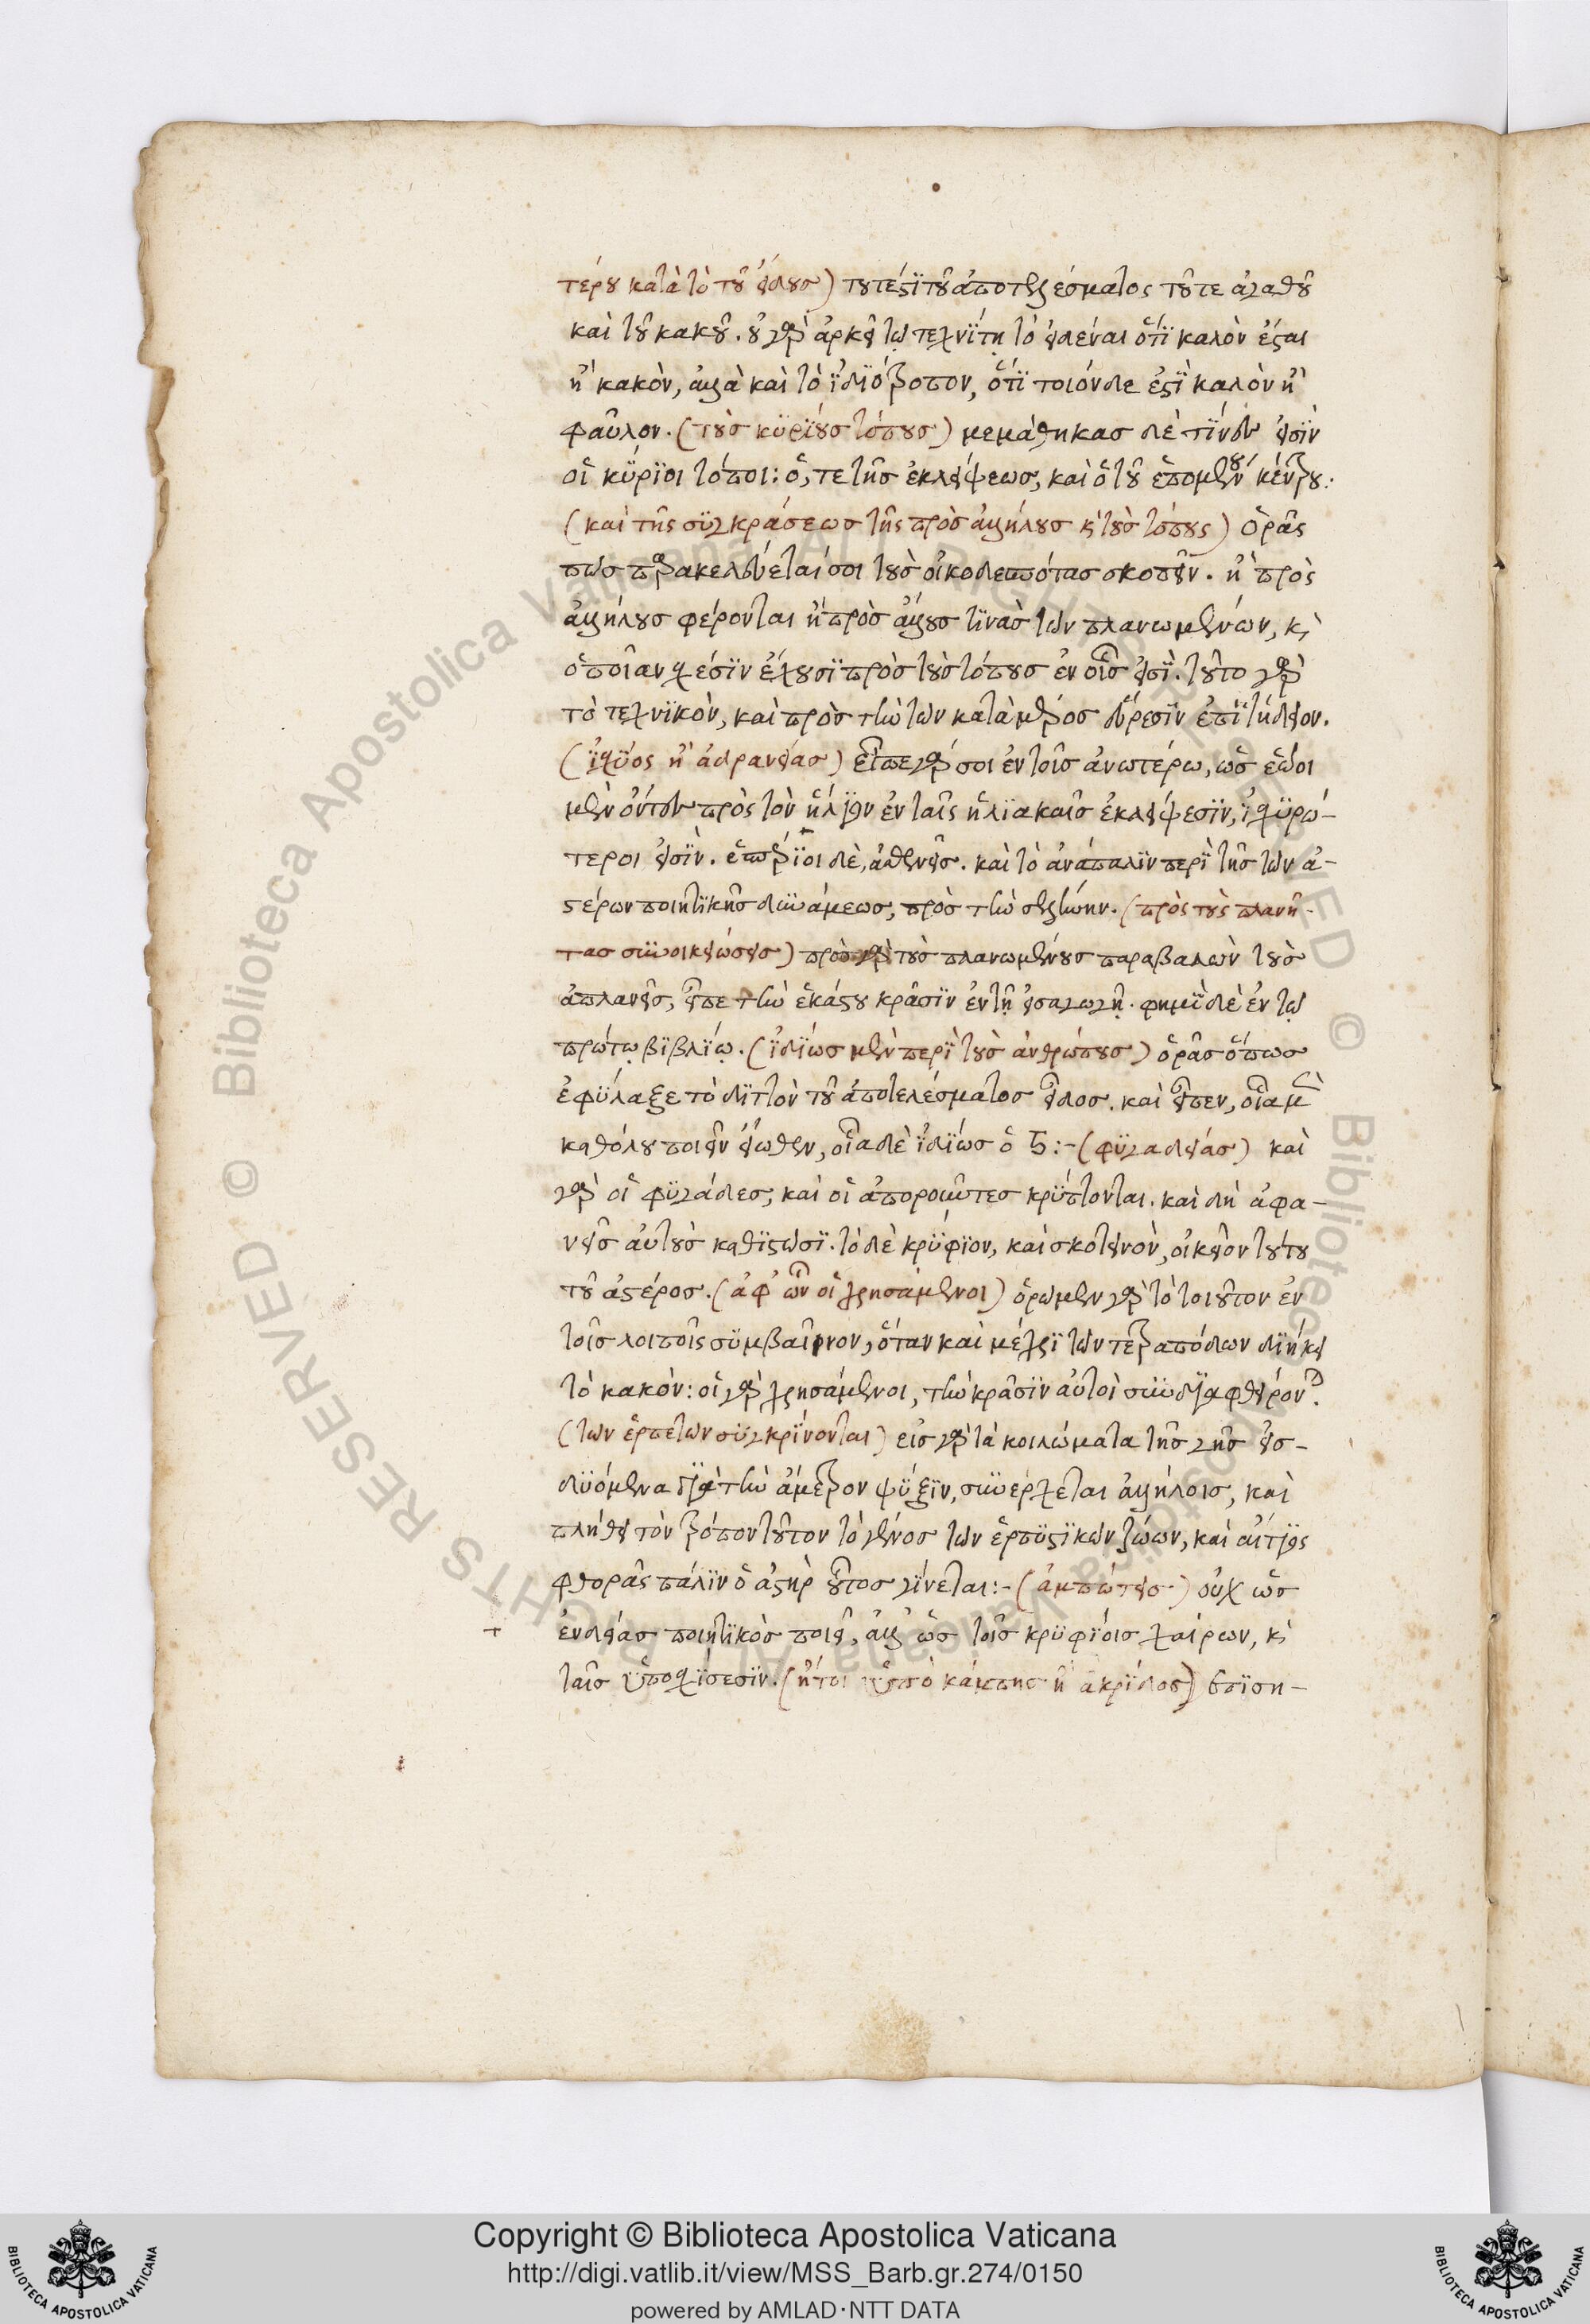 τέρου κατὰ τὸ τοῦ εἴδους) τουτέστι τοῦ ἀποτελέσματος τοῦτε ἀγαθοῦ
καὶ τοῦ κακοῦ. οὐ γὰρ ἀρκεῖ τῷ τεχνίτῃ τὸ εἰδέναι ὅτι καλὸν ἔσται
ἢ κακὸν, ἀλλὰ καὶ τὸ ἰδιότροπον, ὅτι τοιόνδε ἐστὶ καλὸν ἢ
φαῦλον. (τοὺς κυρίους τόπους) μεμάθηκας δὲ τίνες εἰσὶν
οἱ κύριοι τόποι: ὅ, τε τῆς ἐκλείψεως, καὶ ὁ τοῦ ἑπομένου κέντρου:
(καὶ τῆς συγκράσεως τῆς πρὸς ἀλλήλους κ τοὺς τόπους) ὁρᾶς
πῶς παρακελεύεταί σοι τοὺς οἰκοδεσπότας σκοπεῖν. ἢ πρὸς
ἀλλήλους φέρονται ἢ πρὸς ἄλλους τινὰς τῶν πλανωμένων, κ
ὁποίαν σχέσιν ἔχουσι πρὸς τοὺς τόπους ἐν οἷς εἰσί. τοῦτο γὰρ
τὸ τεχνικὸν, καὶ πρὸς τὴν τῶν κατὰ μέρος εὕρεσιν ἐπιτήδειον.
(ἰσχύος ἢ ἀδρανείας) εἶπε γάρ σοι ἐν τοῖς ἀνωτέρω, ὡς ἑῷοι
μὲν ὄντες πρὸς τὸν ἥλιον ἐν ταῖς ἡλιακαῖς ἐκλείψεσιν, ἰσχυρώ-
τεροι εἰσὶν. ἑσπέριοι δὲ, ἀσθενεῖς. καὶ τὸ ἀνάπαλιν περὶ τῆς τῶν ἀ-
στέρων ποιητικῆς δυνάμεως, πρὸς τὴν σελήνην. (πρὸς τοὺς πλανή-
τας συνοικειώσεις) πρὸς γὰρ τοὺς πλανωμένους παραβαλὼν τοὺς
ἀπλανεῖς, εἶπε τὴν ἑκάστου κρᾶσιν ἐν τῇ εἰσαγωγῇ. φημὶ δὲ ἐν τῷ
πρώτῳ βιβλίῳ. (ἰδίως μὲν περὶ τοὺς ἀνθρώπους) ὁρᾶς ὅπως
ἐφύλαξε τὸ διττὸν τοῦ ἀποτελέσματος εἶδος. καὶ εἶπεν, οἷα μὲν
καθόλου ποιεῖν εἴωθεν, οἷα δὲ ἰδίως ὁ ♄:- (φυγαδείας) καὶ
γὰρ οἱ φυγάδες, καὶ οἱ ἀποροῦντες κρύπτονται. καὶ δὴ ἀφα-
νεῖς αὐτοὺς καθιστῶσι. τὸ δὲ κρύφιον, καὶ σκοτεινὸν, οἰκεῖον τούτου
τοῦ ἀστέρος. (ἀφ' ὧν οἱ χρησάμενοι) ὁρῶμεν γὰρ τὸ τοιοῦτον ἐν
τοῖς λοιποῖς συμβαῖνον, ὅταν καὶ μέχρι τῶν τετραπόδων διήκει
τὸ κακόν: οἱ γὰρ χρησάμενοι, τὴν κρᾶσιν αὐτοὶ συνδιαφθείρονται.
(τῶν ἑρπετῶν συγκρίνονται) εἰς γὰρ τὰ κοιλώματα τῆς γῆς εἰσ-
δυόμενα διὰ τὴν ἄμετρον ψύξιν, συνέρχεται ἀλλήλοις, καὶ
πλήθει τὸν τρόπον τοῦτον τὸ γένος τῶν ἑρπυστικῶν ζώων, καὶ αἴτιος
φθορᾶς πάλιν ὁ ἀστὴρ οὗτος γίνεται:- (ἀμπώτεις) οὐχ ὡς
ἐνδείας ποιητικὸς ποιεῖ, ἀλλ' ὡς τοῖς κρυφίοις χαίρων, κ
ταῖς ὑποσχίσεσιν. (ἤτοι ὑπὸ κάμπης ἢ ἀκρίδος) ἐπιση-
Copyright © Biblioteca Apostolica Vaticana
http://digi.vatlib.it/view/MSS_Barb.gr.274/0150
powered by AMLAD·NTT DATA